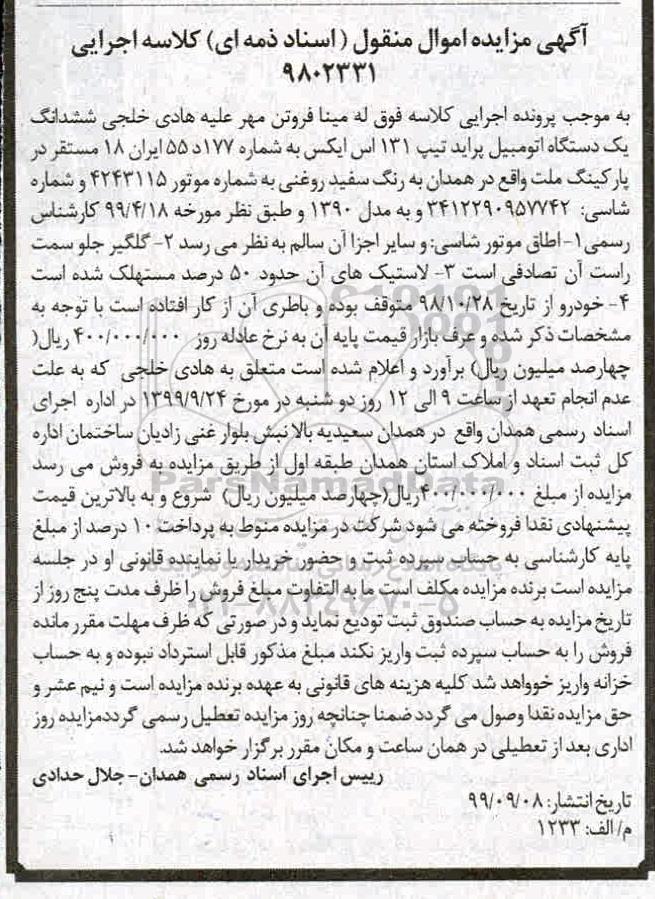 آگهی مزایده اموال منقول (اسناد ذمه ای) کلاسه اجرایی
۹۸۰۲۳۳۱
به موجب پرونده اجرایی کلاسه فوق له مینا فروتن مهر علیه هادی خلجی ششدانگ
یک دستگاه اتومبیل پراید تیپ ۱۳۱ اس ایکس به شماره ۱۷۷د ۵۵ ایران ۱۸ مستقر در
پارکینگ ملت واقع در همدان به رنگ سفید روغنی به شماره موتور ۴۲۴۳۱۱۵ و شماره
شاسی: ۳۴۱۲۲۹۰۹۵۷۷۴۲ و به مدل ۱۳۹۰ و طبق نظر مورخه ۹۹/۴/۱۸ کارشناس
رسمی۱-اطاق موتور شاسی: و سایر اجزا آن سالم به نظر می رسد ۲- گلگیر جلو سمت
راست آن تصادفی است ۳- لاستیک های آن حدود ۵۰ درصد مستهلک شده است
۴- خودرو از تاریخ ۹۸/۱۰/۲۸ متوقف بوده و باطری آن از کار افتاده است با توجه به
مشخصات ذکر شده و عرف بازار قیمت پایه آن به نرخ عادله روز ۴۰۰/۰۰۰/۰۰۰ ریال(
چهارصد میلیون ریال) برآورد و اعلام شده است متعلق به هادی خلجی که به علت
عدم انجام تعهد از ساعت ۹ الی ۱۲ روز دو شنبه در مورخ ۱۳۹۹/۹/۲۴ در اداره اجرای
اسناد رسمی همدان واقع در همدان سعیدیه بالا نبش بلوار غنی زادیان ساختمان اداره
کل ثبت اسناد و املاک استان همدان طبقه اول از طریق مزایده به فروش می رسد
مزایده از مبلغ ۴۰۰/۰۰۰/۰۰۰ریال(چهارصد میلیون ریال) شروع و به بالاترین قیمت
پیشنهادی نقدا فروخته می شود شرکت در مزایده منوط به پرداخت ۱۰ درصد از مبلغ
پایه کارشناسی به حساب سپرده ثبت و حضور خریدار یا نماینده قانونی او در جلسه
مزایده است برنده مزایده مکلف است ما به التفاوت مبلغ فروش را ظرف مدت پنج روز از
تاریخ مزایده به حساب صندوق ثبت تودیع نماید و در صورتی که ظرف مهلت مقرر مانده
فروش را به حساب سپرده ثبت واریز نکند مبلغ مذکور قابل استرداد نبوده و به حساب
خزانه واریز خوواهد شد کلیه هزینه های قانونی به عهده برنده مزایده است و نیم عشر و
حق مزایده نقدا وصول می گردد ضمنا چنانچه روز مزایده تعطیل رسمی گرددمزایده روز
اداری بعد از تعطیلی در همان ساعت و مکان مقرر برگزار خواهد شد.
رییس اجرای اسناد رسمی همدان-جلال حدادی
تاریخ انتشار: ۹۹/۰۹/۰۸
م/الف: ۱۲۳۳
ParsNamadData
۰۲۱-۸۸۳۴۹۶۷۰-۵